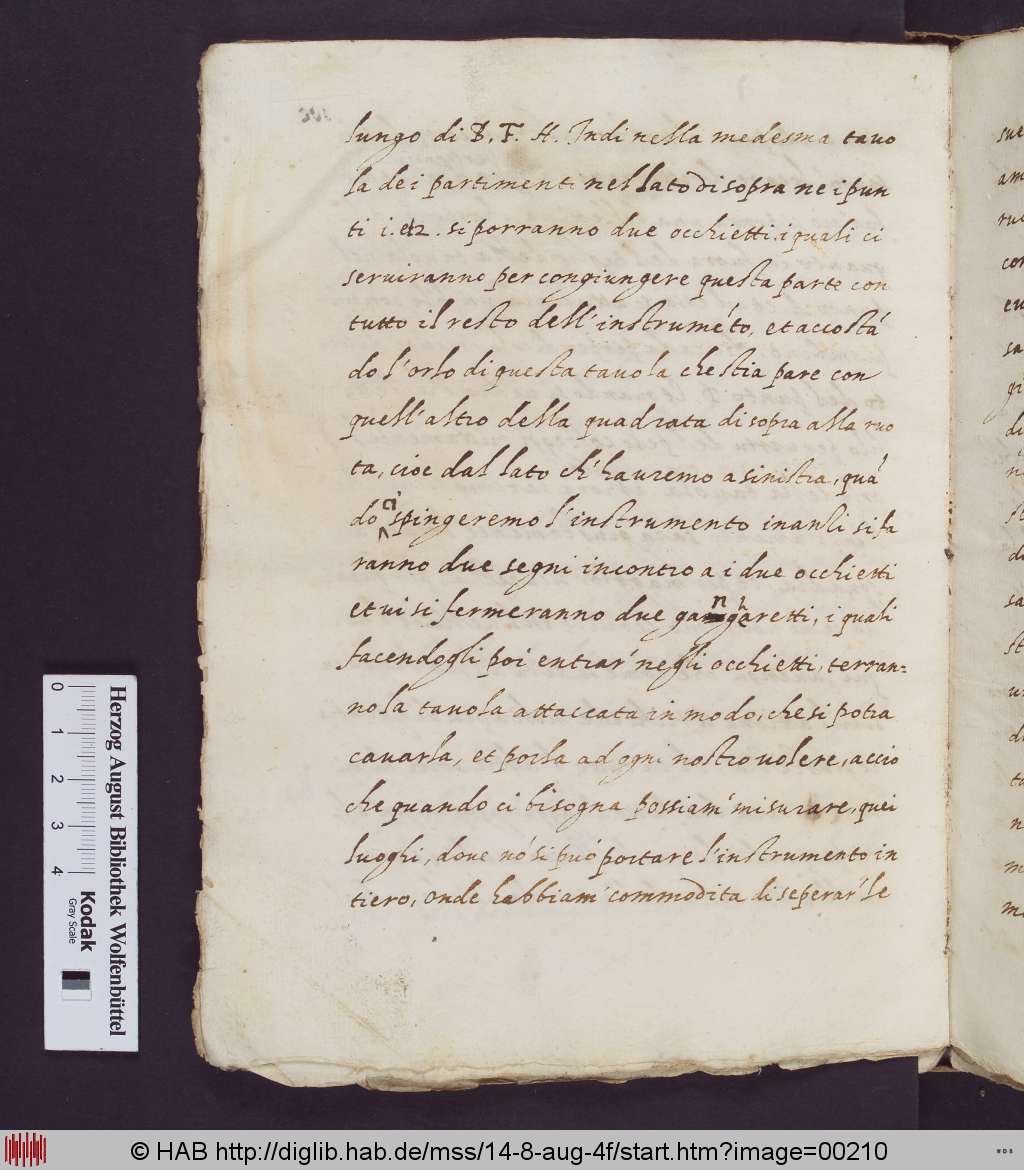 lungo di B. F. H. Indi nella medesma tauo
la de i partimenti nel lato di sopra ne i pun
ti i. et 2. si porranno due occhietti, i quali ci
seruiranno per congiungere questa parte con
tutto il resto dell' instrumẽto, et accostã
do l'orlo di questa tauola che stia pare con
quell' altro della quadrata di sopra alla ruo
ta, cioe dal lato ch' hauremo a sinistra, quã
do spingeremo l'instrumento inanzi si fa
ranno due segni incontro a i due occhietti
et ui si fermeranno due gangaretti, i quali
facendogli poi entrar' negli occhietti, terran=
no la tauola attaccata in modo, che si potra
cauarla, et porla ad ogni nostro uolere, accio
che quando ci bisogna possiam' misurare, quei
luoghi, doue nõ si può portare l'instrumento in
tiero, onde habbiam' commodita di seperar' le
Herzog August Bibliothek Wolfenbüttel
Kodak
Gray Scale
0 1 2 3 4
© HAB http://diglib.hab.de/mss/14-8-aug-4f/start.htm?image=00210